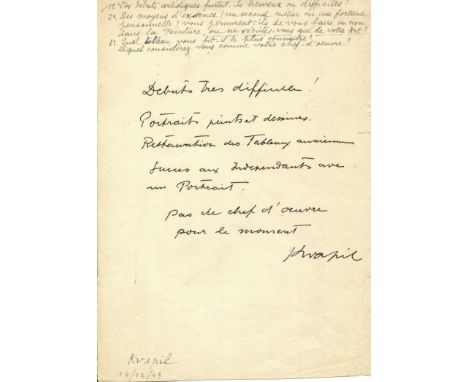 1º Vos débuts artistiques furent-ils heureux ou difficiles!
2º Des moyens d'existence! (un second métier ou une fortune
personnelle) vous permirent-ils de vous faire un nom
dans la Peinture, ou ne vécûtes-vous que de votre Art?
3º Quel tableau vous fit-il le plus connaître!
Lequel considérez-vous comme votre chef d'œuvre!
Debuts tres difficiles!
Portraits peints et dessines.
Restauration des Tableaux anciens
Succes aux Independants avec
un Portrait.
pas de chef d'œuvre
pour le moment
Kvapil
Kvapil